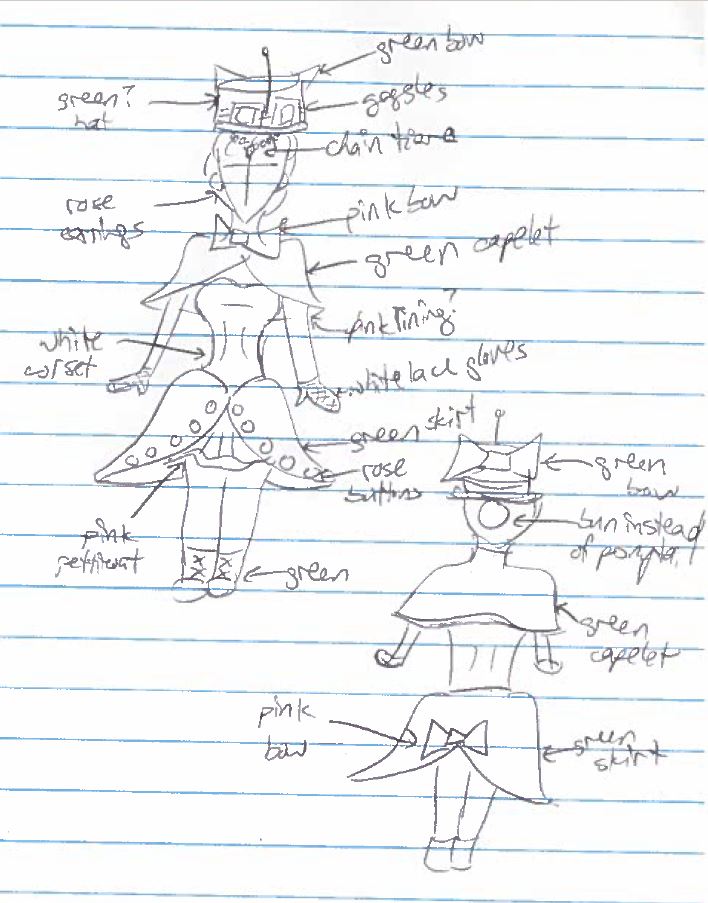 green bow
green?
hat
goggles
chain tiara
rose
earings
pink bow
green capelet
pink lining?
white
corset
white lace gloves
green skirt
rose
buttons
pink
petticoat
green
green
bow
bun instead
of ponytail
green
capelet
pink
bow
green
skirt